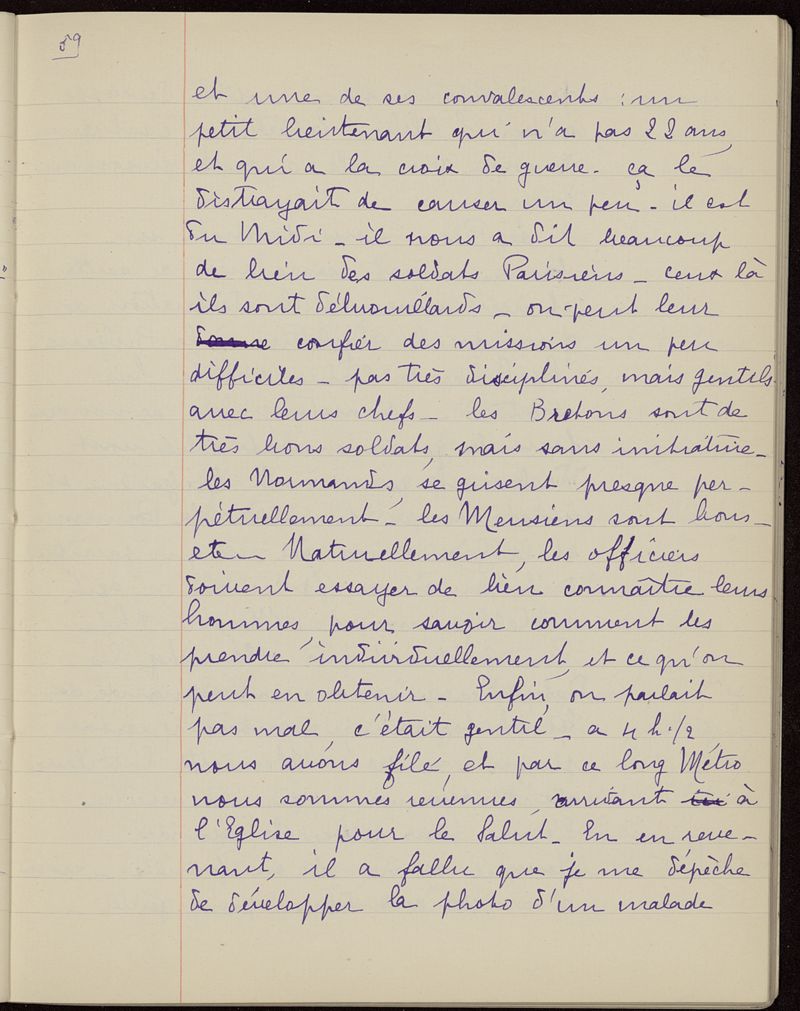 59
et une de ses convalescents : un
petit lieutenant qui n'a pas 22 ans,
et qui a la croix de guerre. ça le
distrayait de causer un peu - il est
du Midi - il nous a dit beaucoup
de bien des soldats Parisiens - ceux là
ils sont débrouillards - on peut leur
donne confier des missions un peu
difficiles - pas très disciplinés, mais gentils
avec leurs chefs - les Bretons sont de
très bons soldats, mais sans initiative -
les Normands, se grisent presque per-
pétuellement - les Meusiens sont bons -
etc - Naturellement, les officiers
doivent essayer de bien connaître leurs
hommes, pour savoir comment les
prendre individuellement, et ce qu'on
peut en obtenir - Enfin, on parlait
pas mal, c'était gentil - a 4 h. 1/2,
nous avons filé, et par ce long Métro
nous sommes revenues, arrivant à
l'Eglise pour le Salut - En en reve-
nant, il a fallu que je me dépèche
de développer la photo d'un malade